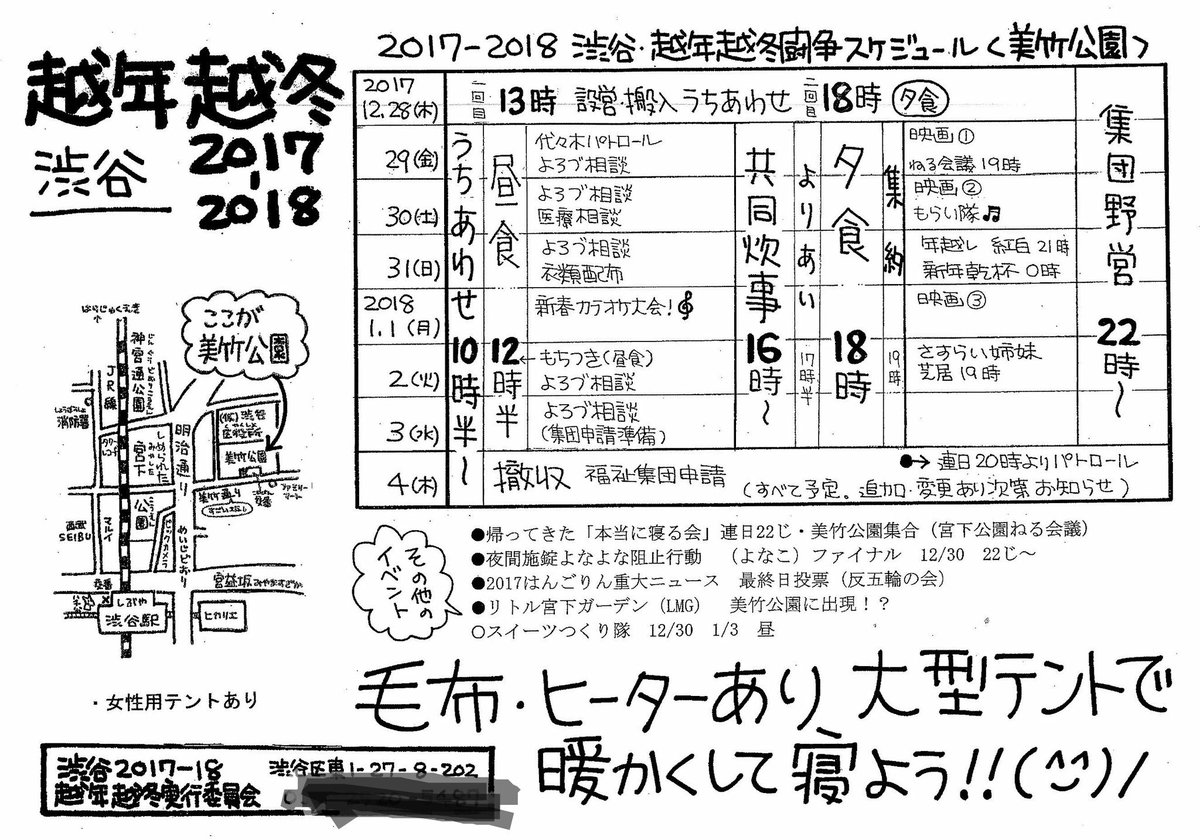 越年越冬
渋谷
2017
-
2018
2017-2018 渋谷・越年越冬闘争スケジュール〈美竹公園〉
2017
12.28(木)
一回目 13時 設営・搬入うちあわせ 二回目 18時 夕食
29(金)
30(土)
31(日)
2018
1.1(月)
2(火)
3(水)
4(木)
うちあわせ 10時半〜
昼食 12時半
代々木パトロール
よろづ相談
よろづ相談
医療相談
よろづ相談
衣類配布
新春カラオケ大会!
←もちつき(昼食)
よろづ相談
よろづ相談
(集団申請準備)
共同炊事 16時〜
よりあい 17時半
夕食 18時
集約 19時
映画①
ねる会議 19時
映画②
もらい隊♫
年越し 紅白 21時
新年乾杯 0時
映画③
さすらい姉妹
芝居 19時
集団野営 22時〜
撤収 福祉集団申請
●→ 連日20時よりパトロール
(すべて予定。追加・変更あり次第お知らせ)
はらじゅくえき
ここが
美竹公園
JR線
神宮通公園
消防署
タワレコ
しめられた
宮下
みやした
公園
明治通り
めいじどおり
(仮)渋谷
区役所
美竹公園
美竹通り
交番
ファミリーマート
西武
SEIBU
マルイ
ビックカメラ
交番
宮益坂 みやますざか
ハチ公
しぶや
渋谷駅
ヒカリエ
・女性用テントあり
その他の
イベント
●帰ってきた「本当に寝る会」連日22じ・美竹公園集合（宮下公園ねる会議）
●夜間施錠よなよな阻止行動　（よなこ）ファイナル　12/30　22じ〜
●2017はんごりん重大ニュース　最終日投票（反五輪の会）
●リトル宮下ガーデン（LMG）　美竹公園に出現！？
○スイーツつくり隊　12/30　1/3　昼
毛布・ヒーターあり、大型テントで
暖かくして寝よう!!(^^)/
渋谷2017-18
越年越冬実行委員会
渋谷区東1-27-8-202